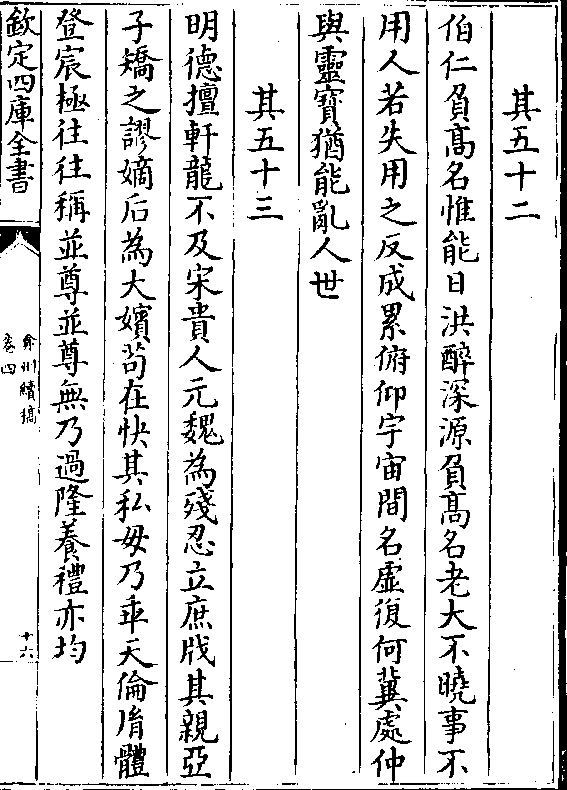 其五十二
伯仁負髙名惟能日洪醉深源負髙名老大不曉事不
用人若失用之反成累俯仰宇宙間名虛復何冀處仲
與靈寶猶能亂人世
其五十三
明德擅軒龍不及宋貴人元魏為殘忍立庶戕其親亞
子矯之謬嫡后為大嬪苟在快其私毋乃乖天倫胤體
登宸極往往稱並尊並尊無乃過隆養禮亦均
欽定四庫全書
弇州續稿
卷四
十六